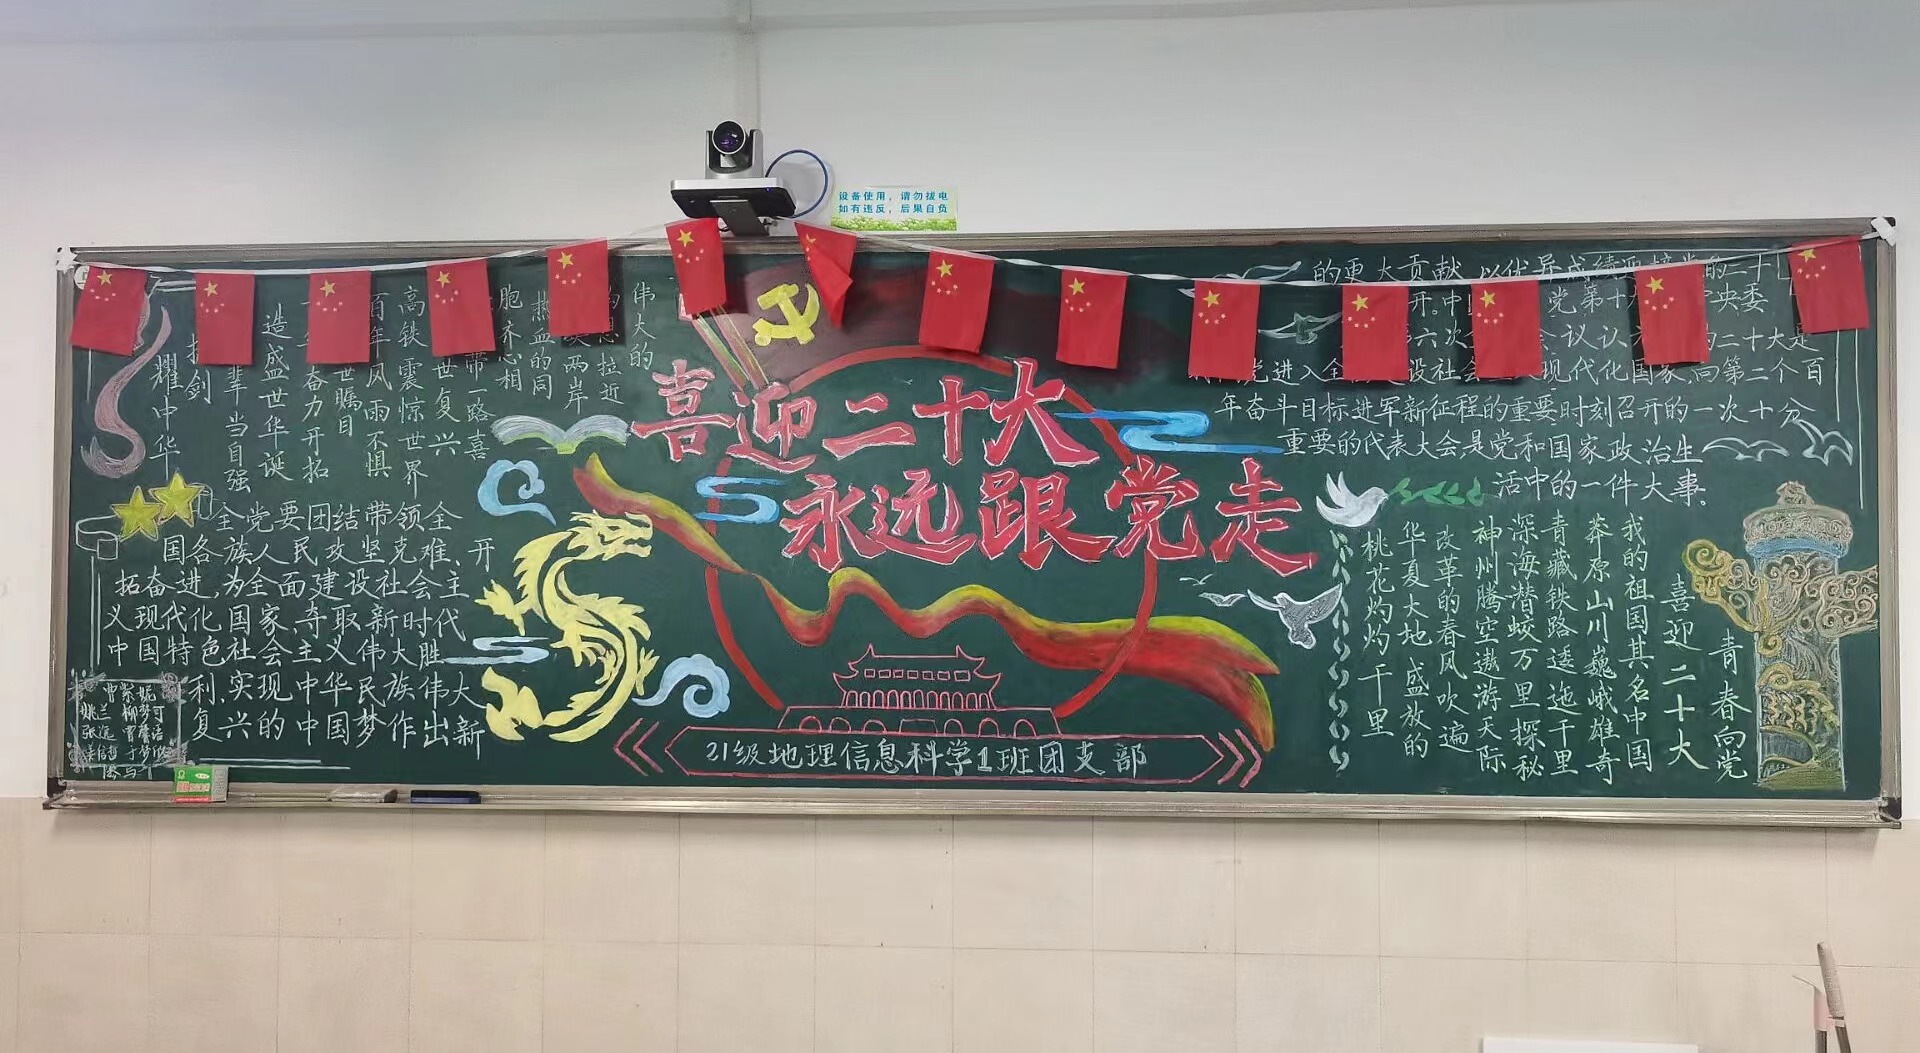 设备使用，请勿拔电
如有违反，后果自负
喜迎二十大
永远跟党走
21级地理信息科学1班团支部
伟大的
拉近
两岸
热血的同
胞齐心相
带一路喜
世复兴
高铁震惊世界
百年风雨不惧
世瞩目
奋力开拓
造盛世华诞
辈当自强
剑
耀中华
全党要团结带领全
国各族人民攻坚克难、开
拓奋进,为全面建设社会主
义现代化国家、夺取新时代
中国特色社会主义伟大胜
利、实现中华民族伟大
复兴的中国梦作出新
的更大贡献,以优异成绩迎接党的二十
开。中 党第十 央委
六次 会议认 二十大是
党进入全 建设社会 现代化国家,向第二个百
年奋斗目标进军新征程的重要时刻召开的一次十分
重要的代表大会是党和国家政治生
活中的一件大事。
青春向党
喜迎二十大
我的祖国其名中国
莽原山川巍峨雄奇
青藏铁路逶迤千里
深海潜蛟万里探秘
神州腾空遨游天际
改革的春风吹遍
华夏大地盛放的
桃花灼灼千里